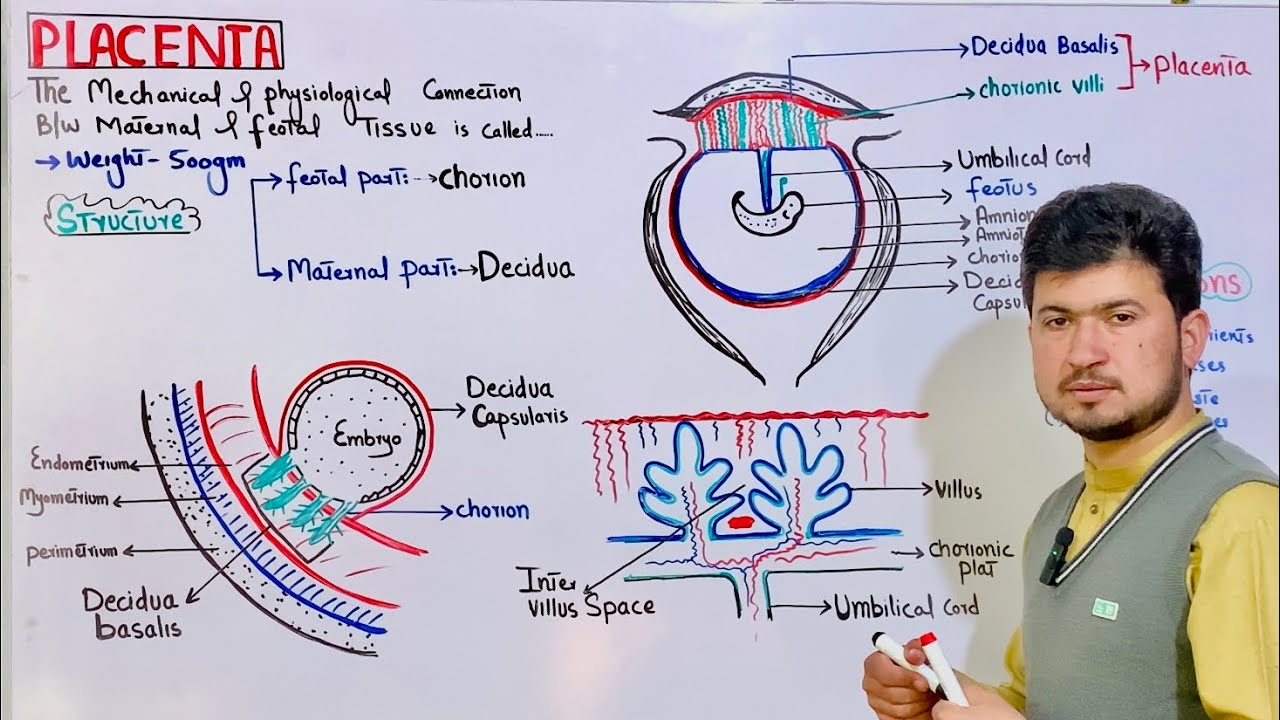 PLACENTA
The Mechanical & physiological Connection
B/w Maternal & feotal Tissue is called.....
→ Weight - 500gm
Structure
feotal part: → Chorion
Maternal part: → Decidua
Decidua Basalis
chorionic villi
placenta
Umbilical Cord
feotus
Amnion
Decidua
Capsularis
Embryo
chorion
Endometrium
Myometrium
perimetrium
Decidua
basalis
Villus
chorionic
plat
Inter
villus Space
Umbilical Cord